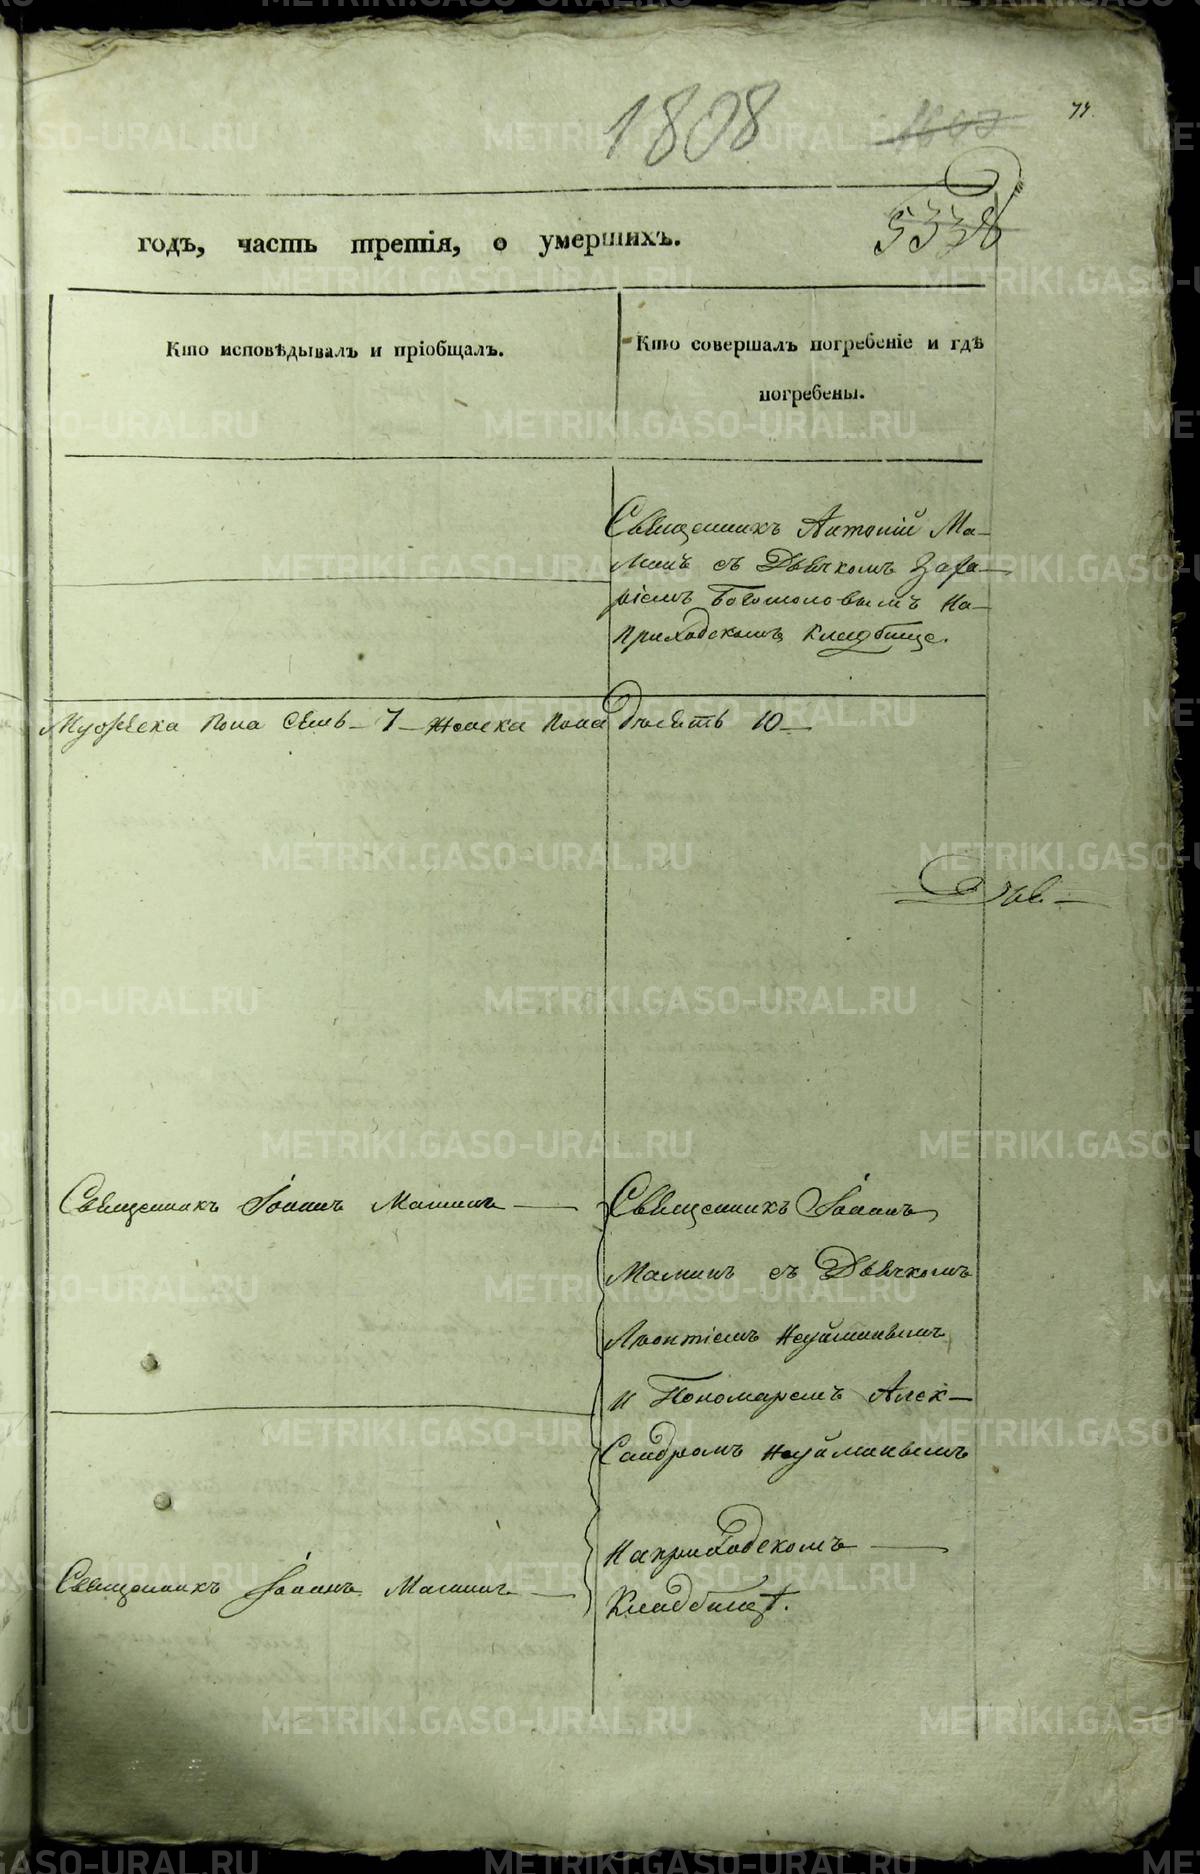 1808
74.
5338
годъ, часть третія, о умершихъ.
Кто исповѣдывалъ и пріобщалъ.
Кто совершалъ погребеніе и гдѣ
погребены.
Священникъ Антоній Ма-
минъ съ Дьячкомъ Заха-
ріемъ Богомоловымъ На-
приходскомъ кладбище.
Мужеска пола семь - 7 - женска пола десять 10
Священникъ Іоаннъ Маминъ
Священникъ Іоаннъ
Маминъ съ Дьячкомъ
Леонтіемъ Неуйминымъ
и Пономаремъ Алек-
сандромъ Неуйминымъ
Священникъ Іоаннъ Маминъ
на приходскомъ
Кладбищѣ.
METRIKI.GASO-URAL.RU